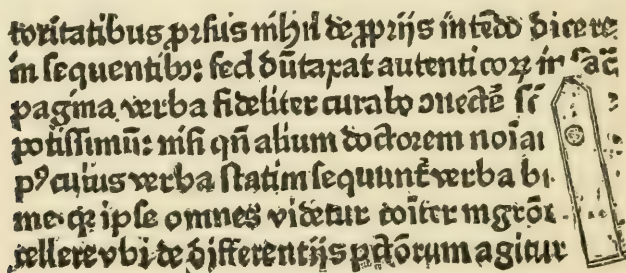 toritatibus prsus nihil de ꝓprijs intẽdo dicere
in sequentibꝫ: sed dũtaxat autenticoꝝ in sac̃
pagina verba fideliter curabo ↄnectẽ
potissimũ: nisi qñ alium doctorem noiaı
pꝰ cuius verba statim sequunt̃ verba
me: qꝛ ipse omnes videtur cõiter mgrõꝝ
cellere vbi de differentijs pctõrum agitur